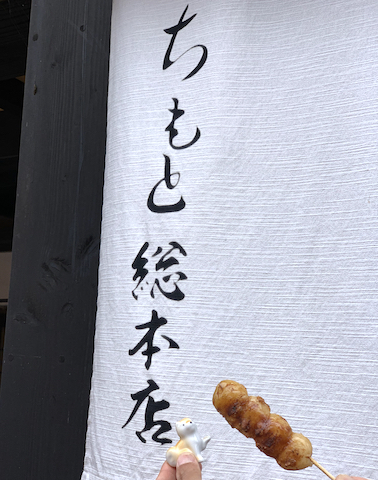 ちもと総本店